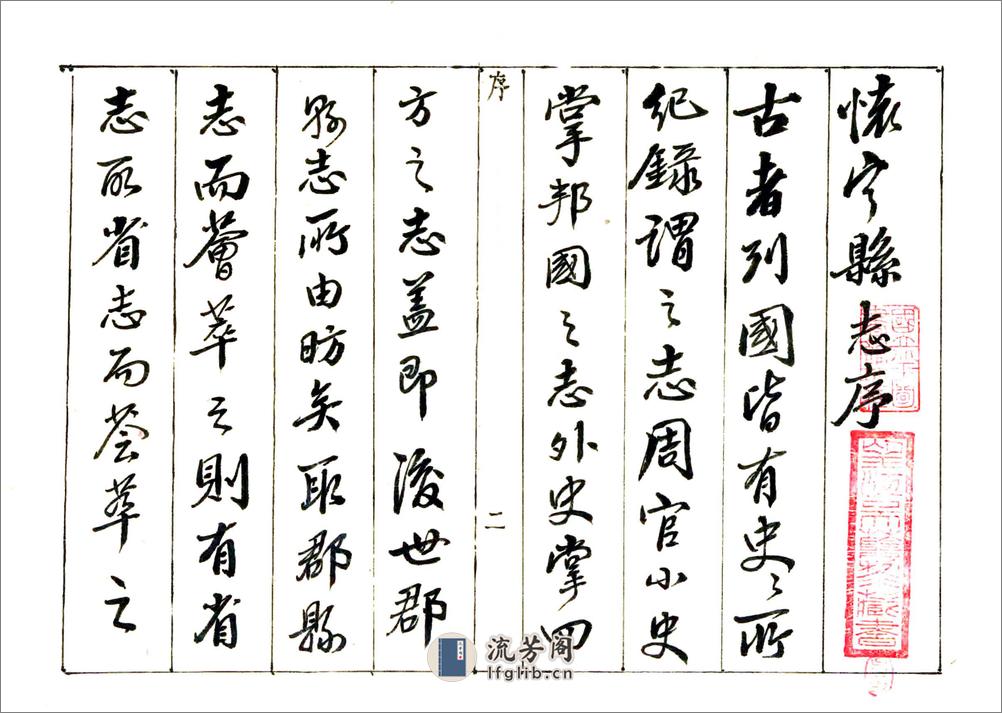 懷寧縣志序
古者列國皆有史〻所
紀錄謂之志周官小史
掌邦國之志外史掌四
序
二
方之志蓋即後世郡
縣志所由昉矣取郡縣
志而薈萃之則有省
志取省志而薈萃之
流芳阁
lfglib.cn